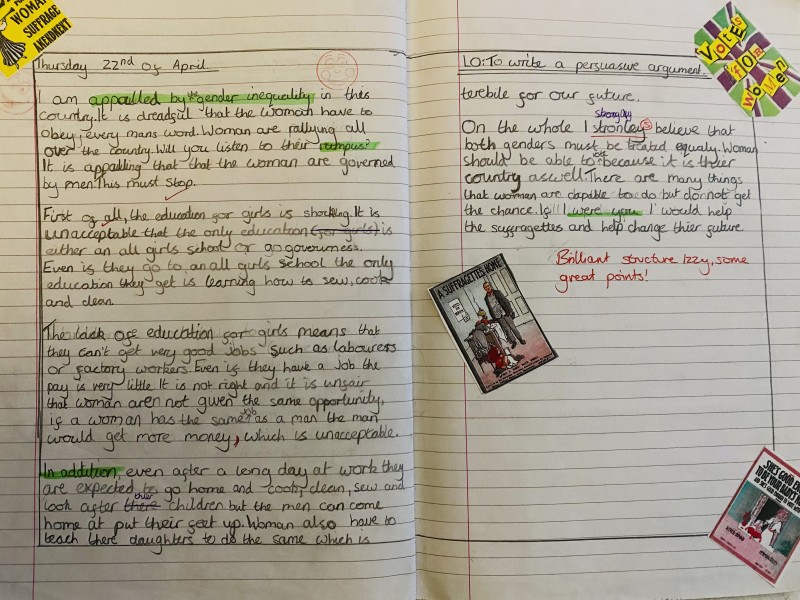 WOMAN
SUFFRAGE
AMENDMENT
Thursday 22nd of April.
I am appalled by the gender inequality in this
country. It is dreadful that the woman have to
obey, every mans word. Woman are rallying all
over the country. Will you listen to their
It is appalling that that the woman are governed
by men. This must stop.
First of all, the education for girls is shocking. It is
unacceptable that the only education (for girls) is
either an all girls school or go governess.
Even if they go to an all girls school the only
education they get is learning how to sew, cook
and clean.
The lack of education for girls means that
they can't get very good jobs such as labouress
or factory workers. Even if they have a job the
pay is very little. It is not right and it is unfair
that woman aren not given the same opportunity,
if a woman has the same job as a man the man
would get more money, which is unacceptable.
In addition, even after a long day at work they
are expected to go home and cook, clean, sew and
look after there thier children but the men can come
home at put their feet up. Woman also have to
teach there daughters to do the same which is
VOTES
FOR
WOMEN
LO: To write a persuasive argument.
terebile for our future.
strongly
On the whole I stronley s believe that
both genders must be treated equaly. Woman
should be able to vote because it is thier
country aswell. There are many things
that woman are capible to do but do not get
the chance. If I were you I would help
the suffragettes and help change thier future.
Brilliant structure Izzy, some
great points!
A SUFFRAGETTES HOME